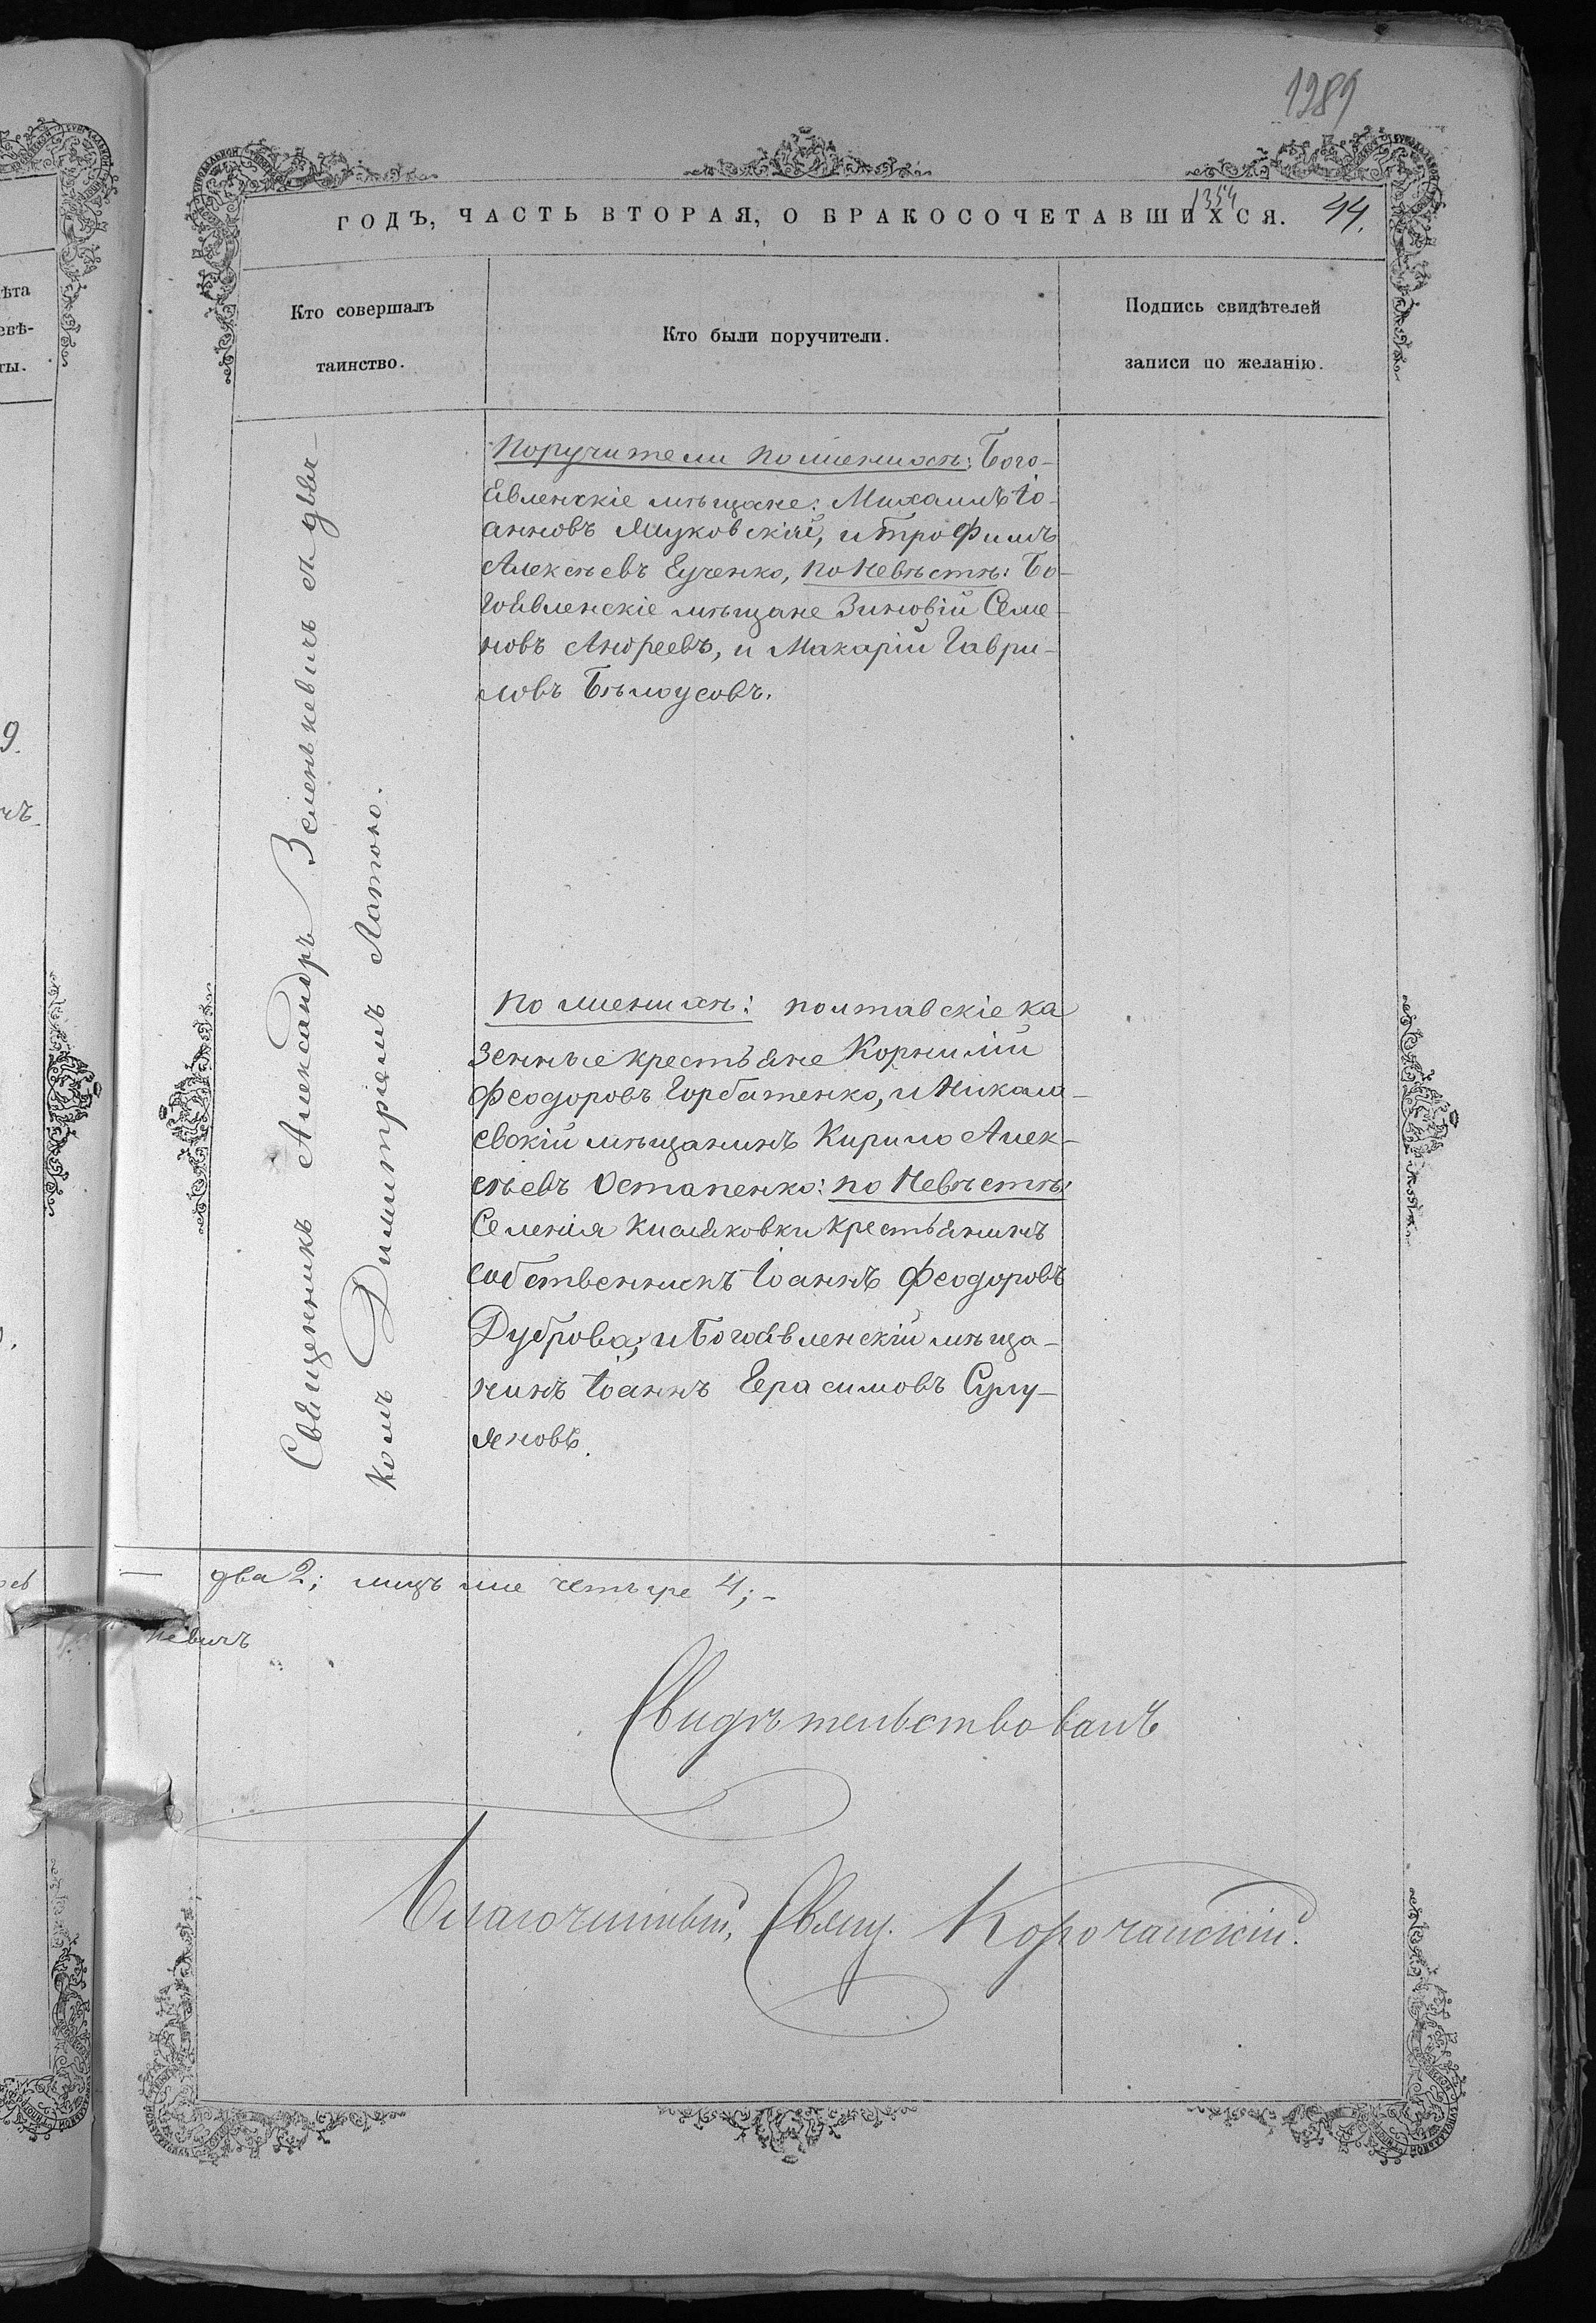 1289
1354
ГОДЪ, ЧАСТЬ ВТОРАЯ, О БРАКОСОЧЕТАВШИХСЯ. 44.
Кто совершалъ
таинство.
Кто были поручители.
Подпись свидѣтелей
записи по желанію.
Священникъ Александръ Зеленькевичъ съ дьяч-
комъ Димитріемъ Латою.
Поручители по женихѣ: Бого-
явленскіе мѣщане: Михаилъ Іо-
анновъ Яцковскій, и Трофимъ
Алексѣевъ Гученко, по невѣстѣ: Бо-
гоявленскіе мѣщане Зиновій Семе-
новъ Андреевъ, и Макарій Гаври-
ловъ Бѣлоусовъ.
по женихѣ: полтавскіе ка
зенные крестьяне Корнилій
Феодоровъ Горбатенко, и Никола-
евскій мѣщанинъ Кирило Алек-
сѣевъ Остапенко: по невѣстѣ:
Селенія Кисляковки крестьянинъ
собственникъ Іоаннъ Феодоровъ
Дуброва; и Богоявленскій мѣща-
нинъ Іоаннъ Герасимовъ Сулу-
яновъ.
два 2; лицъ же четыре 4; -
кевичъ
Свидѣтельствовалъ
Благочинный, Свящ. Корочанскій.
ѣта
евѣ-
ты.
9.
чъ.